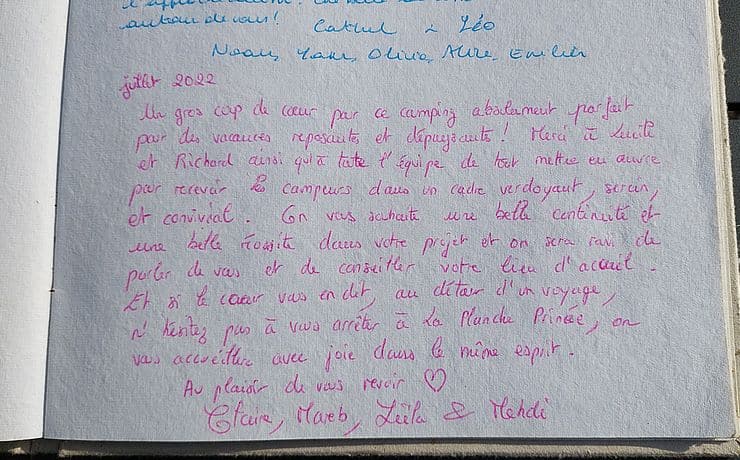 autour de vous !
& Léo
Noam, Yann, Olivia, Alice, Emilien
juillet 2022
Un gros coup de cœur pour ce camping absolument parfait
pour des vacances reposantes et dépaysantes ! Merci à Lucile
et Richard ainsi qu'à toute l'équipe de tout mettre en œuvre
pour recevoir les campeurs dans un cadre verdoyant, serein,
et convivial. On vous souhaite une belle continuité et
une belle réussite dans votre projet et on sera ravi de
parler de vous et de conseiller votre lieu d'accueil.
Et si le cœur vous en dit, au détour d'un voyage,
n'hésitez pas à vous arrêter à La Planche Prince, on
vous accueillera avec joie dans le même esprit.
Au plaisir de vous revoir ♡
Claire, Mareb, Leïla & Mehdi